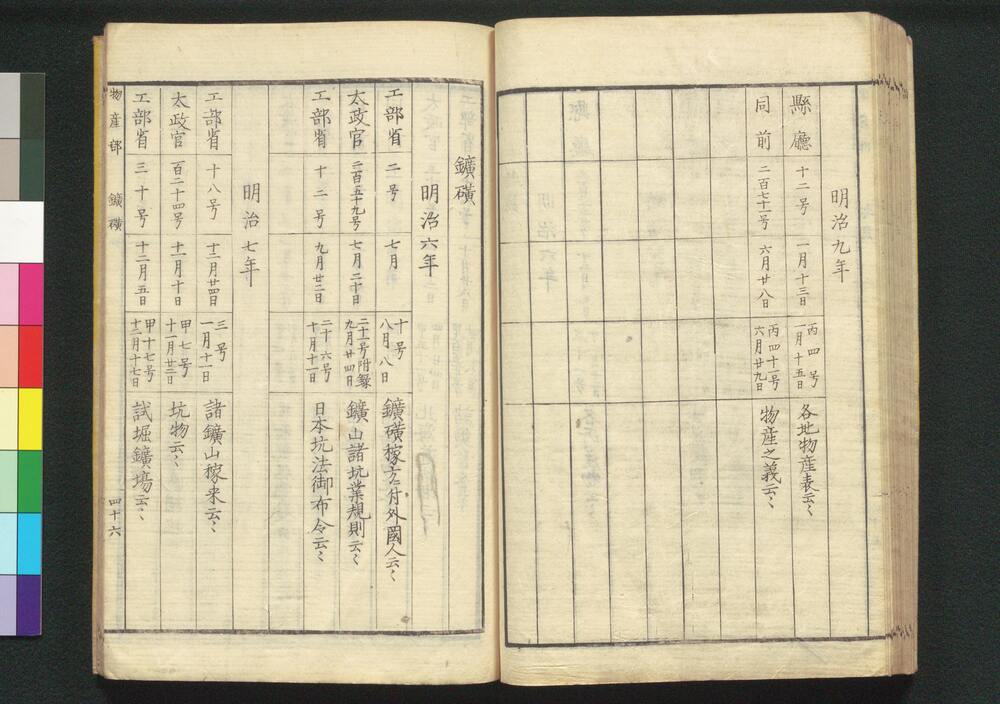 明治九年
縣廳 十二号 一月十三日 丙四号 一月十五日 各地物産表云〻
同前 二百七十一号 六月廿八日 丙四十一号 六月廿九日 物産之義云〻
鑛礦
明治六年
工部省 二号 七月 十号 八月八日 鑛礦稼方ニ付外國人云〻
太政官 二百五十九号 七月二十日 二十一号附録 九月廿四日 鑛山諸坑業規則云〻
工部省 十二号 九月廿二日 二十六号 十月十一日 日本坑法御布令云〻
明治七年
工部省 十八号 十二月廿四日 三号 一月十一日 諸鑛山稼来云〻
太政官 百二十四号 十一月十日 甲七号 十一月廿三日 坑物云〻
工部省 三十号 十二月五日 甲十七号 十二月十七日 試堀鑛塲云〻
物産部 鑛礦 四十六